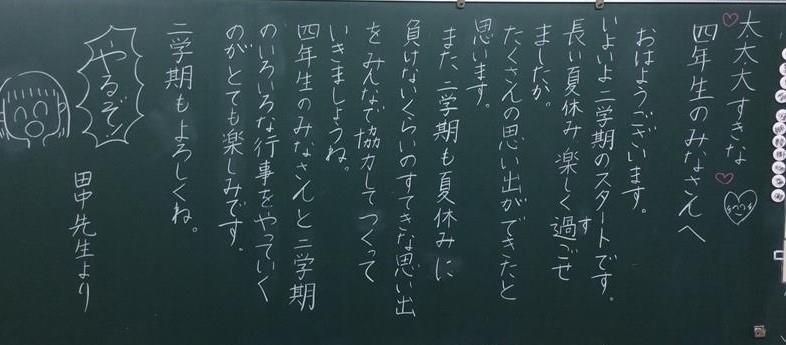 太太大すきな
四年生のみなさんへ
おはようございます。
いよいよ二学期のスタートです。
長い夏休み、楽しく過ごせ
す
ましたか。
たくさんの思い出ができたと
思います。
また、二学期も夏休みに
負けないくらいのすてきな思い出
をみんなで協力してつくって
いきましょうね。
四年生のみなさんと二学期
のいろいろな行事をやっていく
のがとても楽しみです。
二学期もよろしくね。
やるぞ!
田中先生より